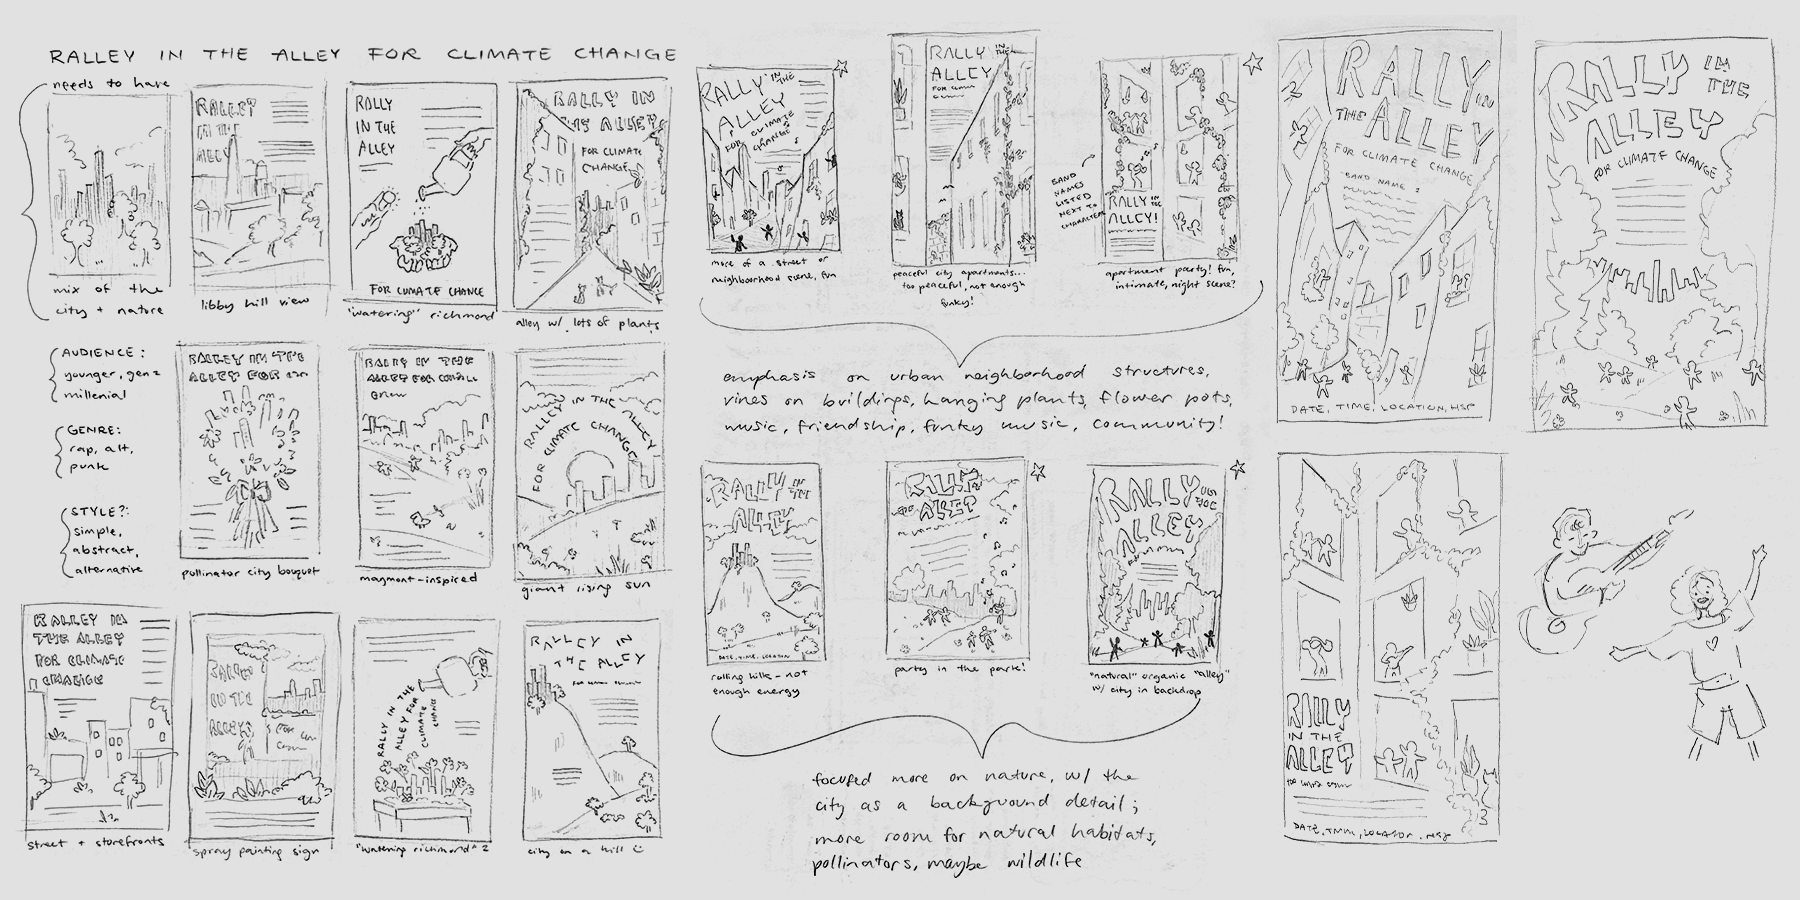 RALLEY IN THE ALLEY FOR CLIMATE CHANGE
needs to have
mix of the
city + nature
RALLEY
IN THE
ALLEY
libby hill view
RALLY
IN THE
ALLEY
FOR CLIMATE CHANGE
"watering" richmond
RALLY IN
ALLEY
FOR CLIMATE
CHANGE
alley w/ lots of plants
AUDIENCE:
younger, gen z
millenial
GENRE:
rap, alt,
punk
STYLE?:
simple,
abstract,
alternative
RALLEY IN THE
ALLEY FOR
pollinator city bouquet
RALLY IN THE
ALLEY FOR
maymont-inspired
RALLY IN THE ALLEY
FOR CLIMATE CHANGE
giant rising sun
RALLEY IN
THE ALLEY
FOR CLIMATE
CHANGE
street + storefronts
RALLEY
IN THE
ALLEY
spray painting sign
RALLY IN THE
ALLEY FOR
CLIMATE
CHANGE
"watering richmond" 2
RALLEY IN
THE ALLEY
city on a hill
RALLY IN THE
ALLEY
FOR CLIMATE
CHANGE
more of a street or
neighborhood scene, fun
RALLY IN THE
ALLEY
FOR
peaceful city apartments...
too peaceful, not enough
funky!
BAND
NAMES
LISTED
NEXT TO
CHARACTERS
RALLY IN THE
ALLEY!
apartment party! fun,
intimate, night scene?
emphasis on urban neighborhood structures,
vines on buildings, hanging plants, flower pots,
music, friendship, funky music, community!
RALLY IN THE
ALLEY
DATE, TIME, LOCATION
rolling hills - not
enough energy
RALLY
ALLEY
party in the park!
RALLY
ALLEY
"natural" organic "alley"
w/ city in backdrop
focused more on nature, w/ the
city as a background detail;
more room for natural habitats,
pollinators, maybe wildlife
RALLY IN
THE ALLEY
FOR CLIMATE CHANGE
BAND NAME
DATE, TIME, LOCATION, MSP
RALLY IN
THE
ALLEY
FOR CLIMATE CHANGE
RALLY
IN THE
ALLEY
DATE, TIME, LOCATION, MSP